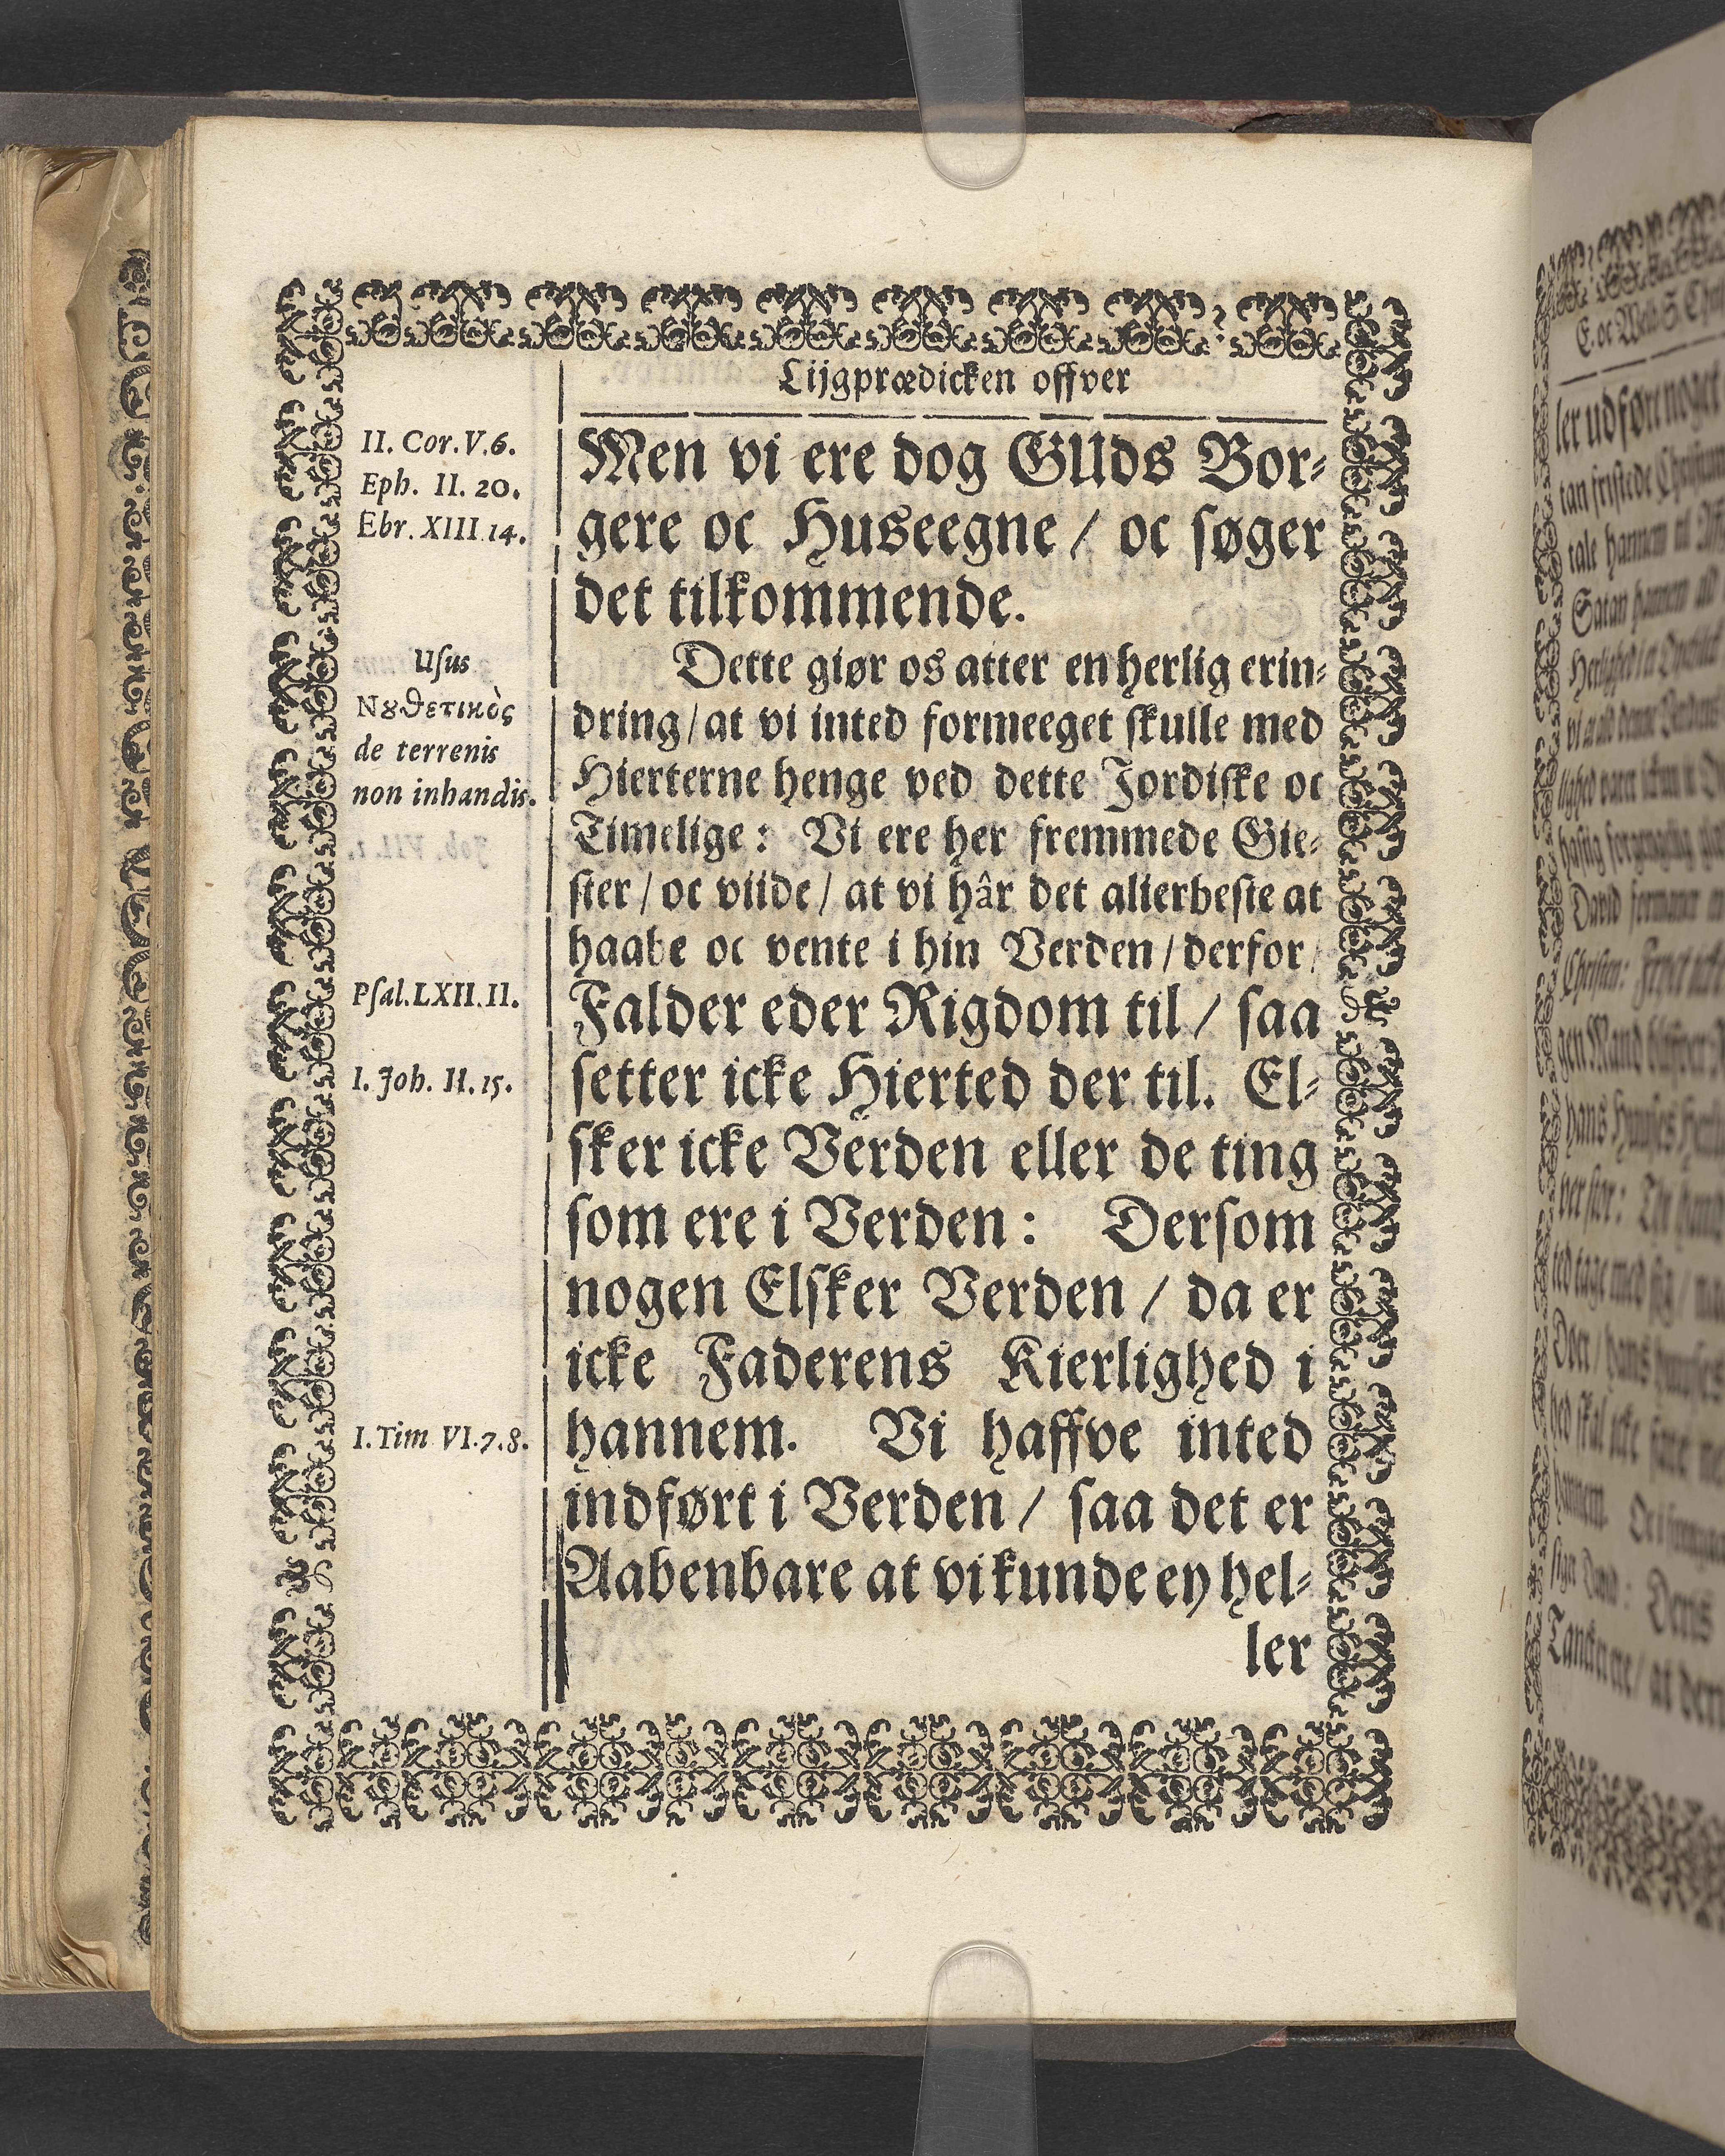 Lijgprædicken offver
II. Cor. V. 6.
Eph. II. 20.
Ebr. XIII 14.
Men vi ere dog GUds Bor-
gere oc Huseegne / oc søger
det tilkommende.
Usus
Νȣθετικὸς
de terrenis
non inhandis.
Dette giør os atter en herlig erin-
dring / at vi inted formeeget skulle med
Hierterne henge ved dette Jordiske oc
Timelige: Vi ere her fremmede Gie-
ster / oc viide / at vi hâr det allerbeste at
haabe oc vente i hin Verden / derfor /
Psal. LXII. II.
Falder eder Rigdom til / saa
I. Joh. II. 15.
setter icke Hierted der til. El-
sker icke Verden eller de ting
som ere i Verden: Dersom
nogen Elsker Verden / da er
icke Faderens Kierlighed i
I. Tim VI. 7. 8.
hannem. Vi haffve inted
indført i Verden / saa det er
Aabenbare at vi kunde ey hel-
ler